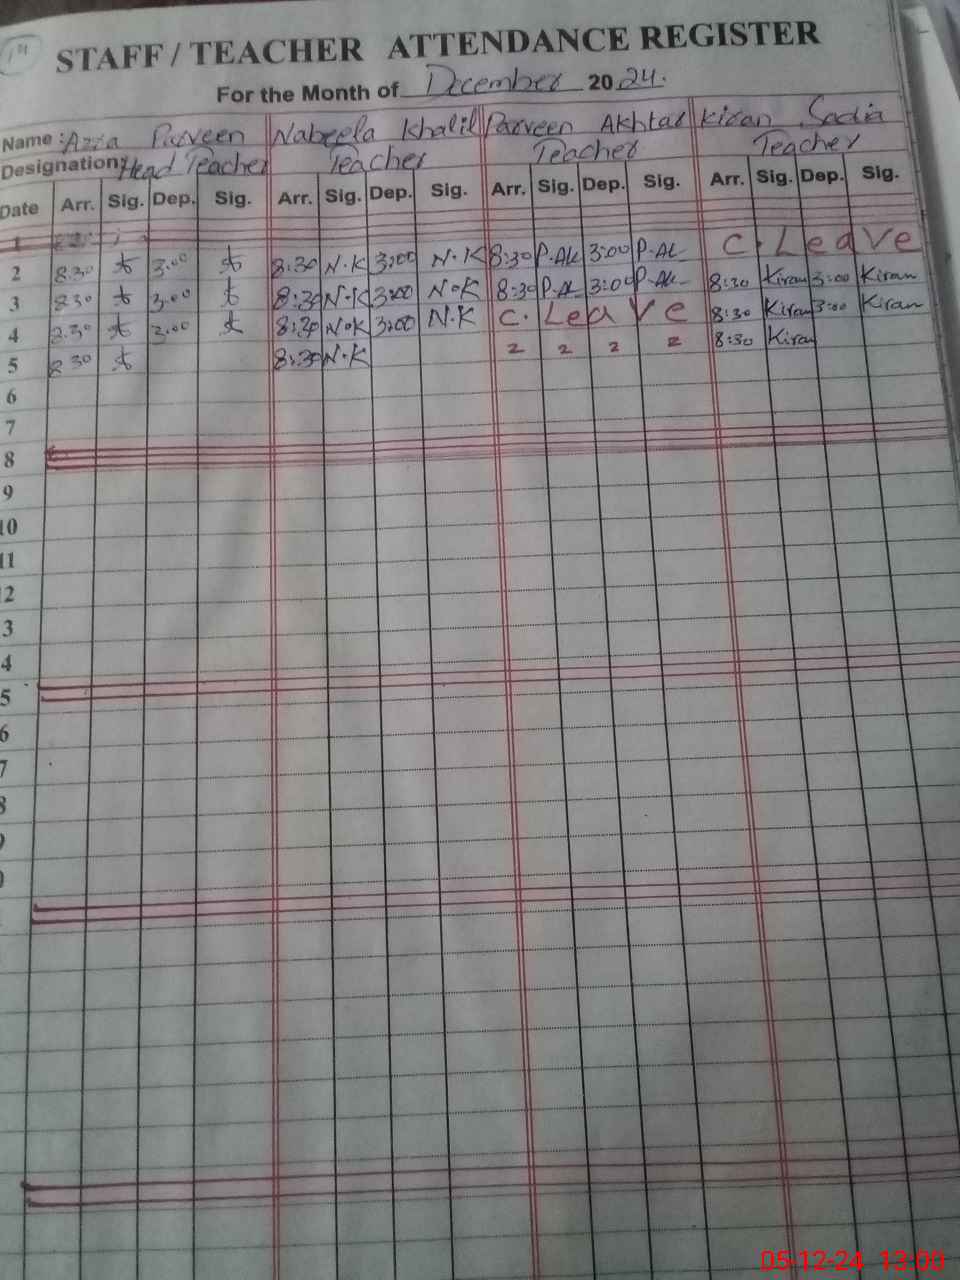 STAFF / TEACHER ATTENDANCE REGISTER
For the Month of December 2024.
Name : Azra Parveen Nabeela Khalil Parveen Akhtar Kiran Sadia
Designation: Head Teacher Teacher Teacher Teacher
Date Arr. Sig. Dep. Sig. Arr. Sig. Dep. Sig. Arr. Sig. Dep. Sig. Arr. Sig. Dep. Sig.
1
2 8:30 3:00 8:30 N.K 3:00 N.K 8:30 P.AK 3:00 P.AK C. Leave
3 8:30 3:00 8:30 N.K 3:00 N.K 8:30 P.AK 3:00 P.AK 8:30 Kiran 3:00 Kiran
4 8:30 3:00 8:30 N.K 3:00 N.K C. Leave 8:30 Kiran 3:00 Kiran
5 8:30 8:30 N.K 2 2 2 2 8:30 Kiran
6
7
8
9
10
11
2
3
4
5
6
7
8
05-12-24 13:00